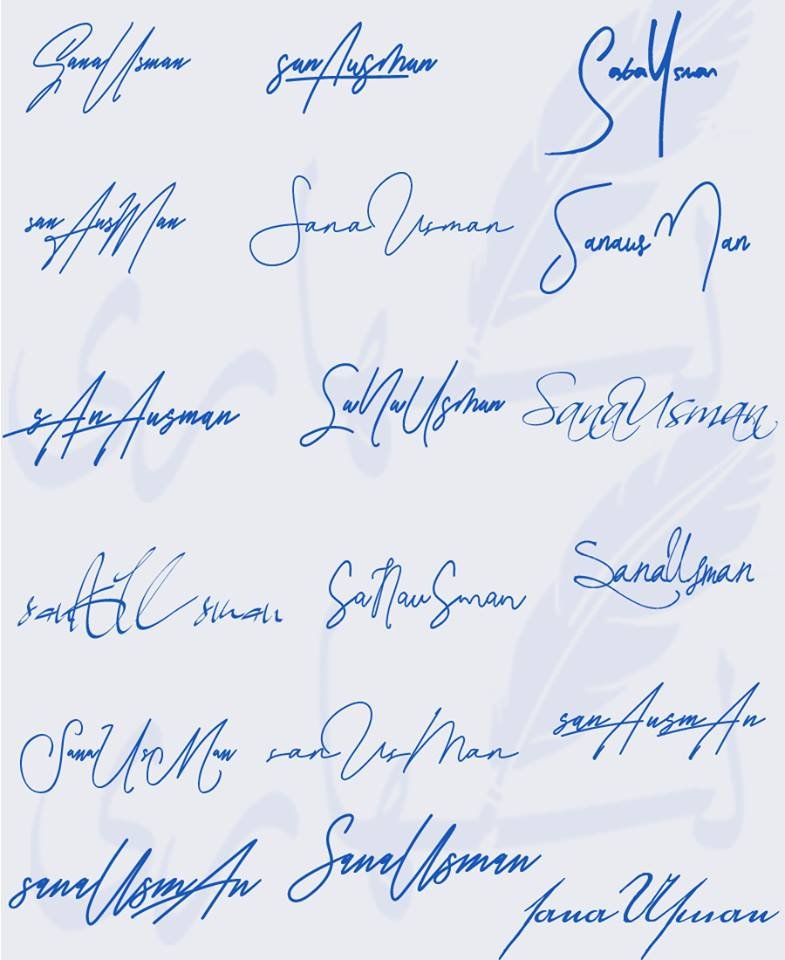 Sana Usman
sanAusman
Saba Usman
sanAusMan
Sana Usman
Sanaus Man
sAnAusman
SaNaUsman
SanaUsman
sanAUsman
SaNauSman
SanaUsman
SanaUsMan
sanUsMan
sanAusmAn
sanaUsmAn
SanaUsman
Sana Usman